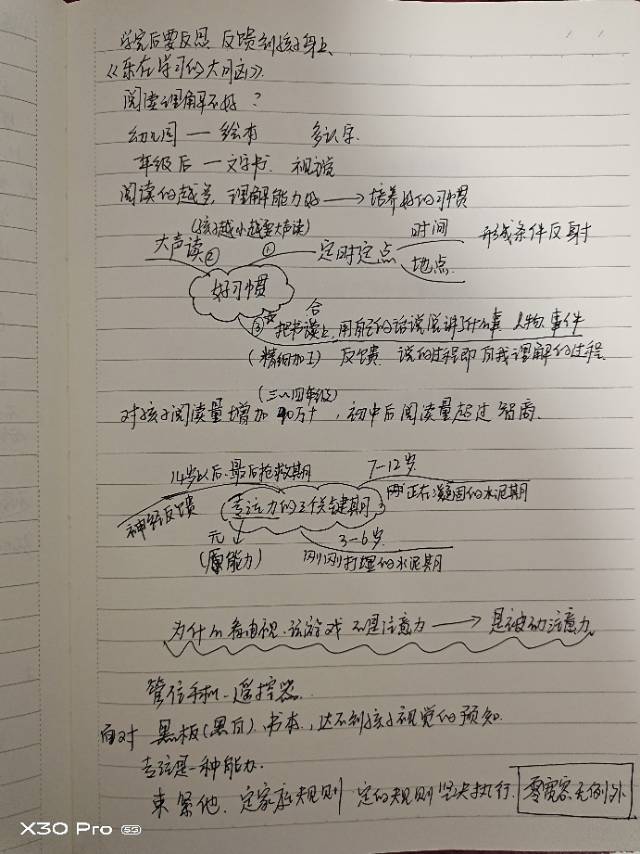 学完后要反思 反馈到孩子身上
《乐在学习的大脑》
阅读理解不好？
幼儿园 — 绘本 多认字
年级后 — 文字书 视觉
阅读的越多，理解能力好 → 培养好的习惯
(孩子越小越要大声读)
大声读② ① 定时定点 时间 地点 形成条件反射
好习惯
③ 把书合上，用自己的话说说讲了什么事 人物、事件
(精细加工) 反馈 说的过程即自我理解的过程
(三、四年级)
对孩子阅读量增加 40万+，初中后阅读量超过智商
14岁以后、最后抢救期 7-12岁
神经反馈 专注力的3个关键期 正在凝固的水泥期
元 3-6岁
(原能力) 刚刚打埋的水泥期
为什么看电视、玩游戏不是注意力 → 是被动注意力
管住手机、遥控器
面对 黑板(黑白)、书本，达不到孩子视觉的预知
专注是一种能力
来紧他、定家庭规则 定的规则坚决执行 零宽容无例外
X30 Pro 5G